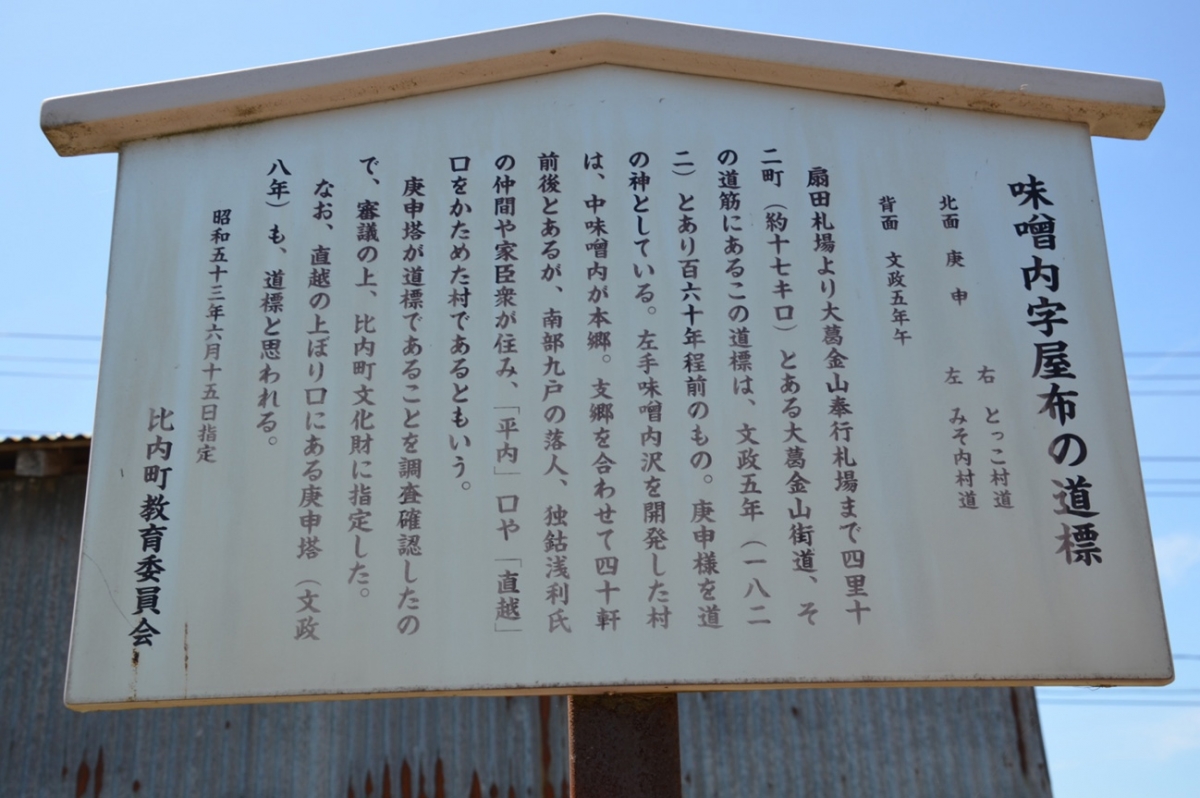 味噌内字屋布の道標
右　とっこ村道
北面　庚　申　　左　みそ内村道
背面　文政五年午
扇田札場より大葛金山奉行札場まで四里十
二町（約十七キロ）とある大葛金山街道、そ
の道筋にあるこの道標は、文政五年（一八二
二）とあり百六十年程前のもの。庚申様を道
の神としている。左手味噌内沢を開発した村
は、中味噌内が本郷。支郷を合わせて四十軒
前後とあるが、南部九戸の落人、独鈷浅利氏
の仲間や家臣衆が住み、「平内」口や「直越」
口をかためた村であるともいう。
庚申塔が道標であることを調査確認したの
で、審議の上、比内町文化財に指定した。
なお、直越の上ぼり口にある庚申塔（文政
八年）も、道標と思われる。
昭和五十三年六月十五日指定
比内町教育委員会